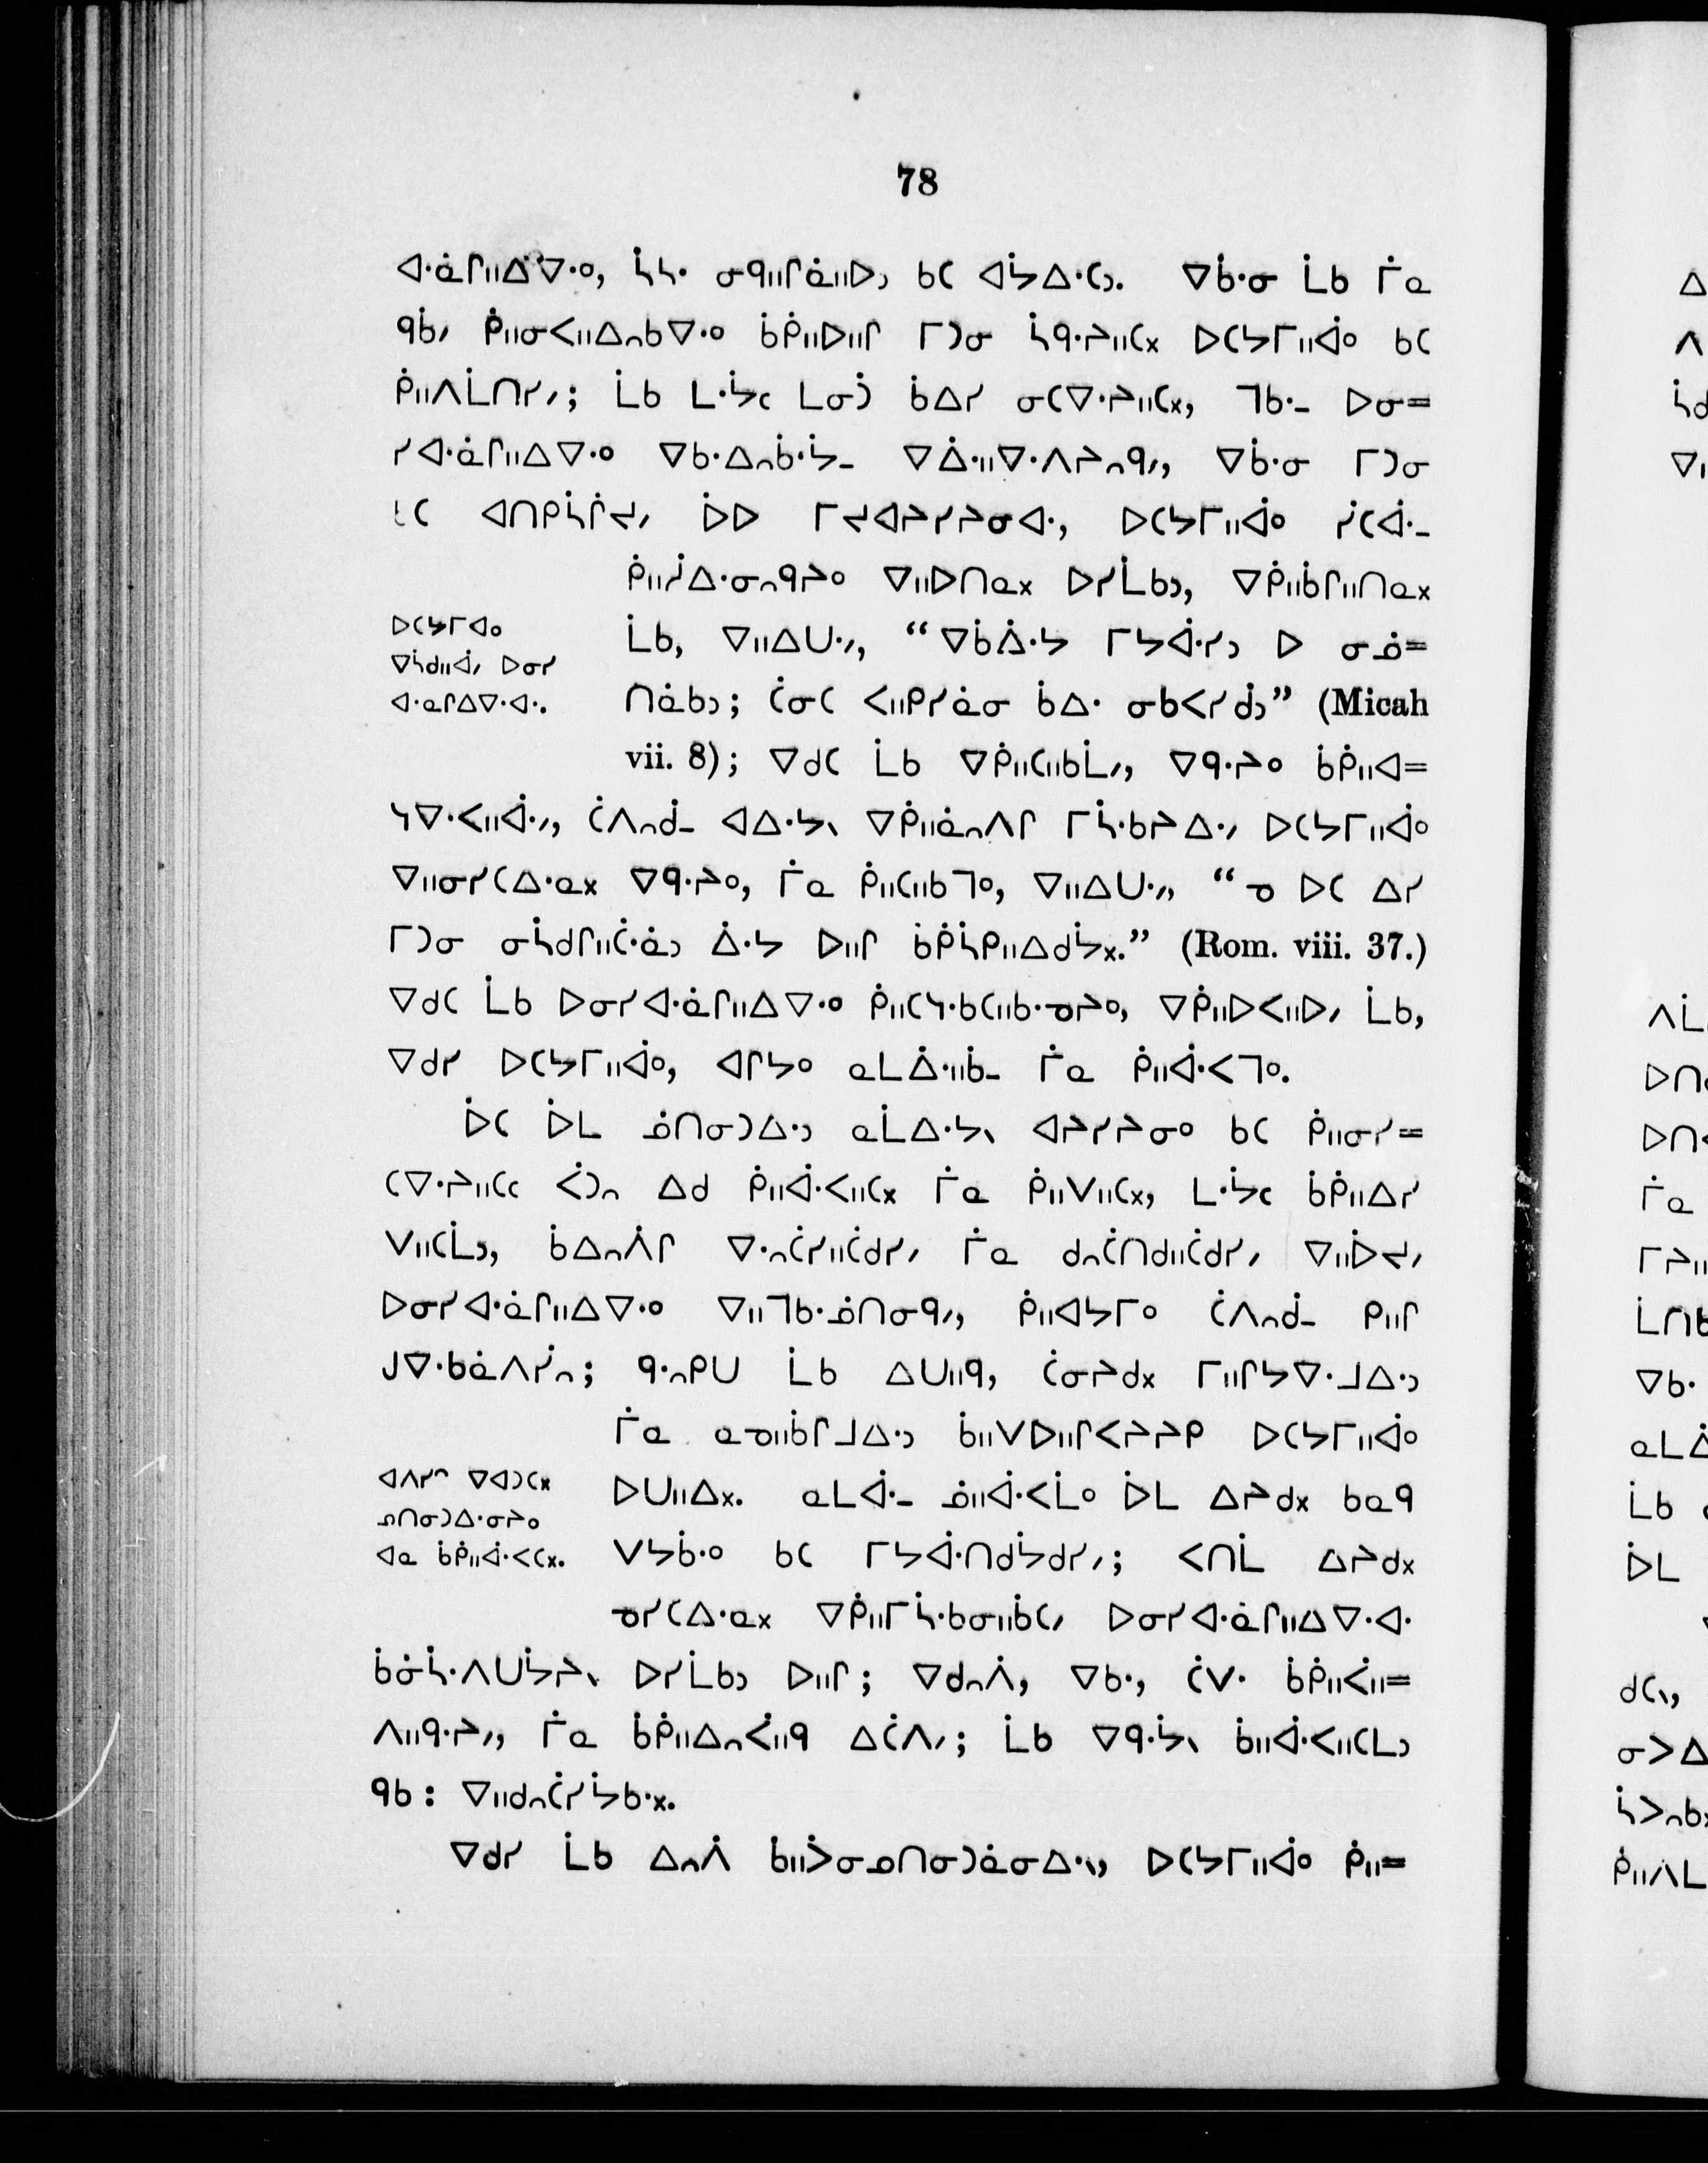 78
ᐊᐧᓈᒋᐦᐃᐁᐧᐤ, ᓵᓴᐧ ᓂᑫᐦᒋᓈᐦᐅᐣ ᑲᑕ ᐊᔮᐃᐧᑕᐣ. ᐁᑳᐧᓂ ᒫᑲ ᒦᓇ
ᑫᑳᐟ ᑮᐦᓂᐸᐦᐃᐢᑲᐁᐧᐤ ᑳᑮᐦᐅᐦᒋ ᒥᑐᓂ ᓵᑫᐧᔨᐦᑕᕽ ᐅᑕᔭᒥᐦᐋᐤ ᑲᑕ
ᑮᐦᐱᒫᑎᓯᐟ; ᒫᑲ ᒪᐧᔮᐨ ᒪᓂᑑ ᑳᐃᓯ ᓂᑕᐁᐧᔨᐦᑕᕽ, ᒣᑲᐧᐨ ᐅᓂ=
ᓯᐊᐧᓈᒋᐦᐃᐁᐧᐤ ᐁᑲᐧᐃᐢᑳᐧᔮᐨ ᐁᐄᐧᐦᐁᐧᐱᔨᐢᑫᐟ, ᐁᑳᐧᓂ ᒥᑐᓂ
ᑕ ᐊᑎᑭᓵᒌᔪᐟ ᐆᐅ ᒥᔪᐊᔨᓯᔨᓂᐊᐧ, ᐅᑕᔭᒥᐦᐋᐤ ᓰᑕᐋᐧᐨ
ᑮᐦᓰᐃᐧᓂᐢᑫᔨᐤ ᐁᐦᐅᑎᓇᕽ ᐅᓯᒫᑲᐣ, ᐁᑮᐦᑳᒋᐦᑎᓇᕽ
ᐅᑕᔭᒥᐊᐤ
ᐁᓵᑯᐦᐋᐟ ᐅᓂᓯ
ᐊᐧᓇᒋᐃᐁᐧᐊᐧ.
ᒫᑲ, ᐁᐦᐃᑌᐧᐟ, “ᐁᑳᐄᐧᔭ ᒥᔭᐋᐧᓯᐣ ᐅ ᓂᓅ=
ᑎᓈᑲᐣ; ᑖᓂᑕ ᐸᐦᑭᓯᓈᓂ ᑳᐃᐧ ᓂᑲᐸᓯᑰᐣ” (Micah
vii. 8); ᐁᑯᑕ ᒫᑲ ᐁᑮᐦᑕᐦᑲᒫᐟ, ᐁᑫᐧᔨᐤ ᑳᑮᐦᐊ=
ᓭᐧᐸᐦᐋᐧᐟ, ᑖᐱᐢᑰᐨ ᐊᐃᐧᔭᐠ ᐁᑮᐦᓈᐢᐱᒋ ᒥᓵᐧᑲᔨᐃᐧᐟ ᐅᑕᔭᒥᐦᐋᐤ
ᐁᐦᓂᓯᑕᐃᐧᓇᕽ ᐁᑫᐧᔨᐤ, ᒦᓇ ᑮᐦᑕᐦᑲᒣᐤ, ᐁᐦᐃᑌᐧᐟ, “ᓀ ᐅᑕ ᐃᓯ
ᒥᑐᓂ ᓂᓵᑯᒋᐦᑖᐧᓈᐣ ᐄᐧᔭ ᐅᐦᒋ ᑳᑮᓵᑭᐦᐃᑯᔭᕽ.” (Rom. viii. 37.)
ᐁᑯᑕ ᒫᑲ ᐅᓂᓯᐊᐧᓈᒋᐦᐃᐁᐧᐤ ᑮᐦᑕᓴᐧᑲᑕᐦᑲᐧᓀᔨᐤ, ᐁᑮᐦᐅᐸᐦᐅᐟ ᒫᑲ,
ᐁᑯᓯ ᐅᑕᔭᒥᐦᐋᐤ, ᐊᒋᔭᐤ ᓇᒪᐄᐧᐦᑳᐨ ᒦᓇ ᑮᐦᐋᐧᐸᒣᐤ.
ᐆᑕ ᐆᒪ ᓅᑎᓂᑐᐃᐧᐣ ᓇᒫᐃᐧᔭᐠ ᐊᔨᓯᔨᓂᐤ ᑲᑕ ᑮᐦᓂᓯ=
ᑕᐁᐧᔨᐦᑕᐨ ᐹᑐᐢ ᐃᑯ ᑮᐦᐋᐧᐸᐦᑕᕽ ᒦᓇ ᑮᐦᐯᐦᑕᕽ, ᒪᐧᔮᐨ ᑳᑮᐦᐃᓯ
ᐯᐦᑕᒫᐣ, ᑳᐃᐢᐲᒋ ᐁᐧᐢᑖᓯᐦᑖᑯᓯᐟ ᒦᓇ ᑯᐢᑖᑎᑯᐦᑖᑯᓯᐟ, ᐁᐦᐆᔪᐟ
ᐅᓂᓯᐊᐧᓈᒋᐦᐃᐁᐧᐤ ᐁᐦᒣᑲᐧᓅᑎᓂᑫᐟ, ᑮᐦᐊᔭᒥᐤ ᑖᐱᐢᑰᐨ ᑭᐦᒋ
ᒍᐁᐧᑲᓈᐱᓰᐢ; ᑫᐧᐢᑭᑌ ᒫᑲ ᐃᑌᐦᑫ, ᑖᓂᔨᑯᕽ ᒥᐦᒋᔭᐁᐧᒧᐃᐧᐣ
ᒦᓇ ᓇᓀᐦᑳᒋᒧᐃᐧᐣ ᑳᐦᐯᐅᐦᒋᐸᔨᔨᑭ ᐅᑕᔭᒥᐦᐋᐤ
ᐊᐱᓯᐣ ᐁᐊᑐᑕᕽ
ᓄᑎᓂᑐᐃᐧᓂᔨᐤ
ᐊᓇ ᑳᑮᐦᐋᐧᐸᑕᕽ.
ᐅᑌᐦᐃᕽ. ᓇᒪᐋᐧᐨ ᓅᐦᐋᐧᐸᒫᐤ ᐆᒪ ᐃᔨᑯᕽ ᑲᓇᑫ
ᐯᔭᑳᐧᐤ ᑲᑕ ᒥᔭᐋᐧᑎᑯᔮᑯᓯᐟ; ᐸᑎᒫ ᐃᔨᑯᕽ
ᓀᓯᑕᐃᐧᓇᕽ ᐁᑮᐦᒥᓵᐧᑲᓂᐦᑳᑕᐟ ᐅᓂᓯᐊᐧᓈᒋᐦᐃᐁᐧᐊᐧ
ᑳᓃᓵᐧᐱᑌᔮᔨᐠ ᐅᓯᒫᑲᐣ ᐅᐦᒋ; ᐁᑯᐢᐲ, ᐁᑲᐧ, ᑖᐯᐧ ᑳᑮᐦᐹᐦ=
ᐱᐦᑫᐧᔨᐟ, ᒦᓇ ᑳᑮᐦᐃᐢᐹᐦᑫ ᐃᑖᐱᐟ; ᒫᑲ ᐁᑫᐧᔮᐠ ᑳᐦᐋᐧᐸᐦᑕᒪᐣ
ᑫᑲ: ᐁᐦᑯᐢᑖᓯᔮᑲᐧᕽ.
ᐁᑯᓯ ᒫᑲ ᐃᐢᐲ ᑳᐦᐴᓂᓄᑎᓂᑐᓈᓂᐃᐧᐠ, ᐅᑕᔭᒥᐦᐋᐤ ᑮᐦ=